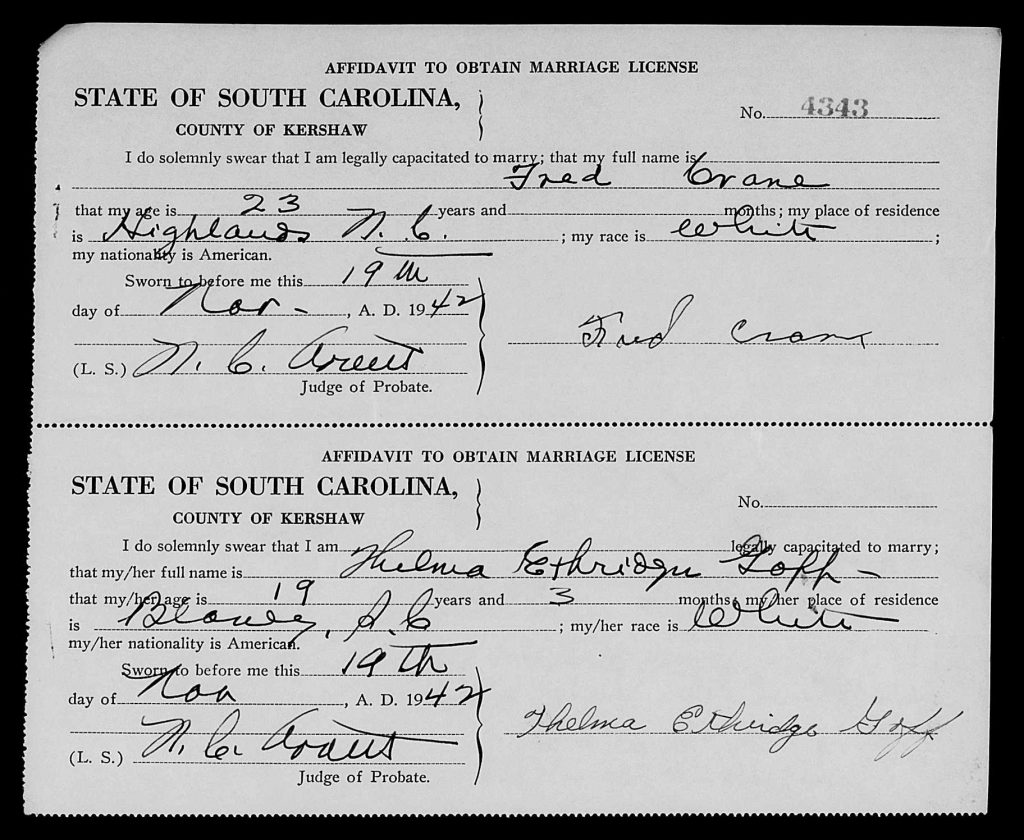 AFFIDAVIT TO OBTAIN MARRIAGE LICENSE
STATE OF SOUTH CAROLINA,
No. 4343
COUNTY OF KERSHAW
I do solemnly swear that I am legally capacitated to marry; that my full name is
Fred Crane
that my age is 23 years and months; my place of residence
is Highlands N. C. ; my race is White ;
my nationality is American.
Sworn to before me this 19th
day of Nov- , A. D. 1942
Fred Crane
(L. S.) N. C. Arnett
Judge of Probate.
AFFIDAVIT TO OBTAIN MARRIAGE LICENSE
STATE OF SOUTH CAROLINA,
No.
COUNTY OF KERSHAW
I do solemnly swear that I am legally capacitated to marry;
that my/her full name is Thelma Ethridge Goff -
that my/her age is 19 years and 3 months; my/her place of residence
is Blaney, S. C ; my/her race is White
my/her nationality is American.
Sworn to before me this 19th
day of Nov , A. D. 1942
Thelma Ethridge Goff
(L. S.) N. C. Arnett
Judge of Probate.